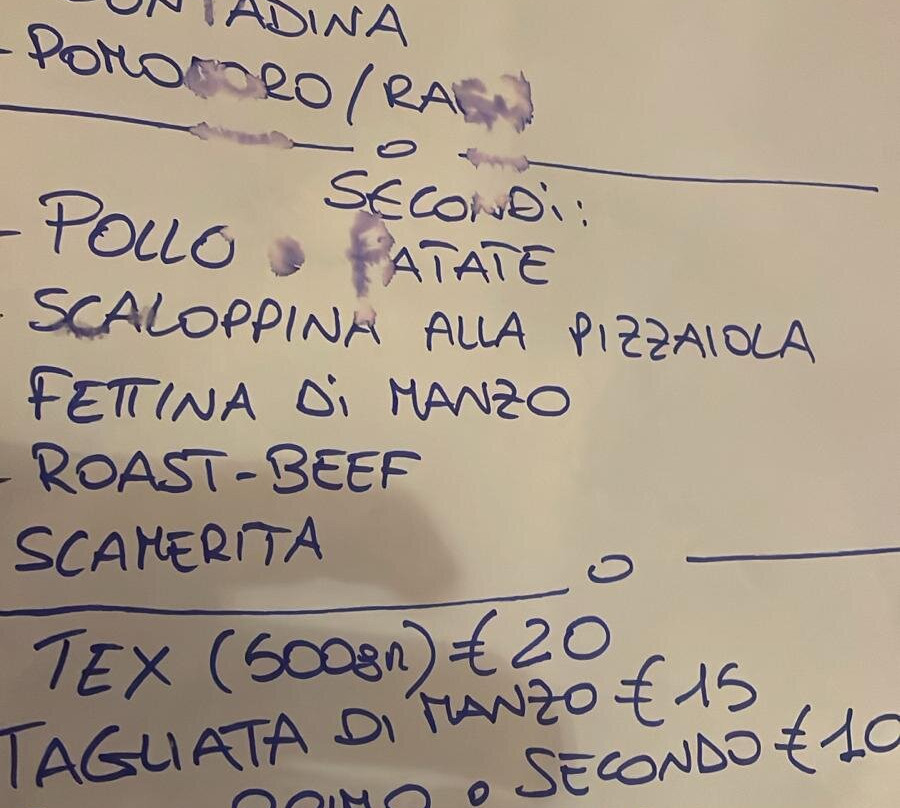 CONTADINA
- POMODORO / RAGÙ
o
SECONDi:
- POLLO PATATE
- SCALOPPINA ALLA PIZZAIOLA
FETTINA Di MANZO
- ROAST-BEEF
SCAMERITA
o
TEX (500gr) € 20
TAGLIATA Di MANZO € 15
PRIMO o SECONDO € 10